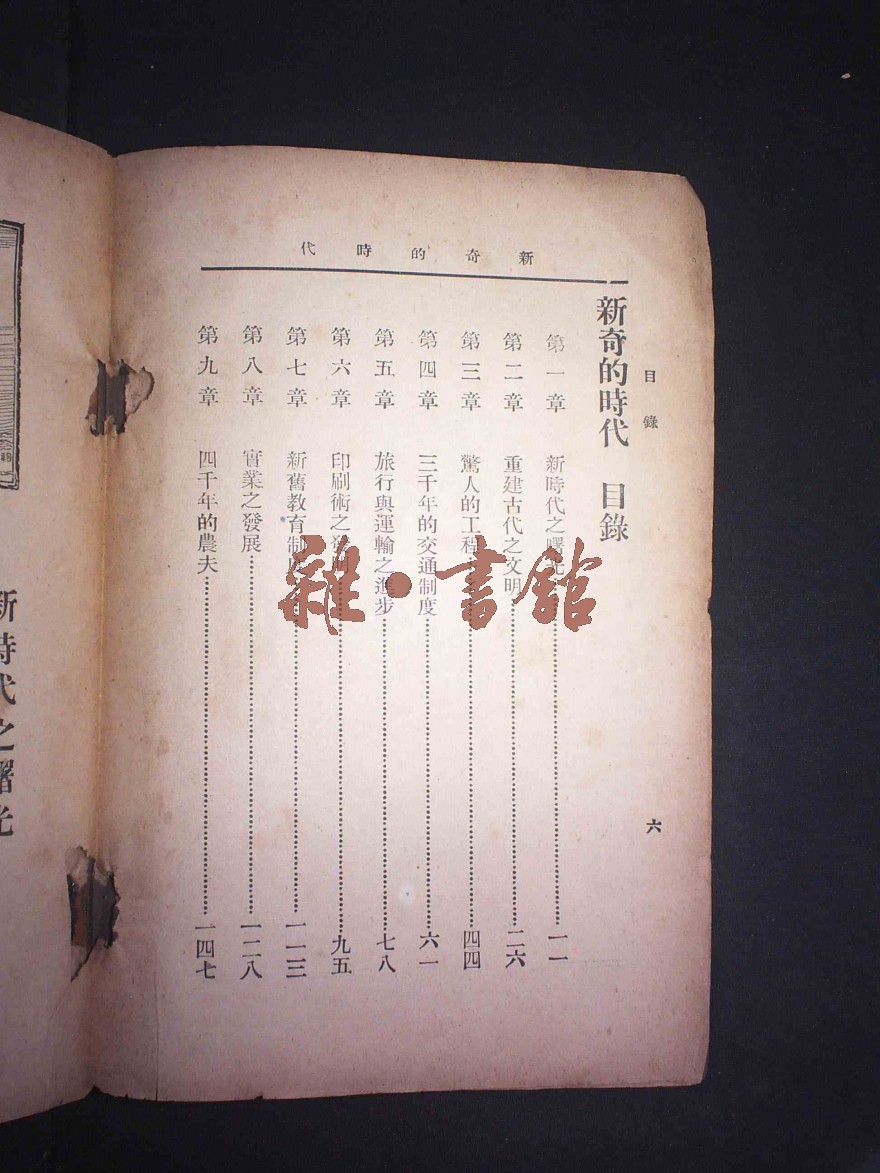 新奇的時代
目錄
六
新奇的時代 目錄
第一章 新時代之曙光 一一
第二章 重建古代之文明 二六
第三章 驚人的工程 四四
第四章 三千年的交通制度 六一
第五章 旅行與運輸之進步 七八
第六章 印刷術之發 九五
第七章 新舊教育制 一一三
第八章 實業之發展 一二八
第九章 四千年的農夫 一四七
新時代之曙光
雜·書館